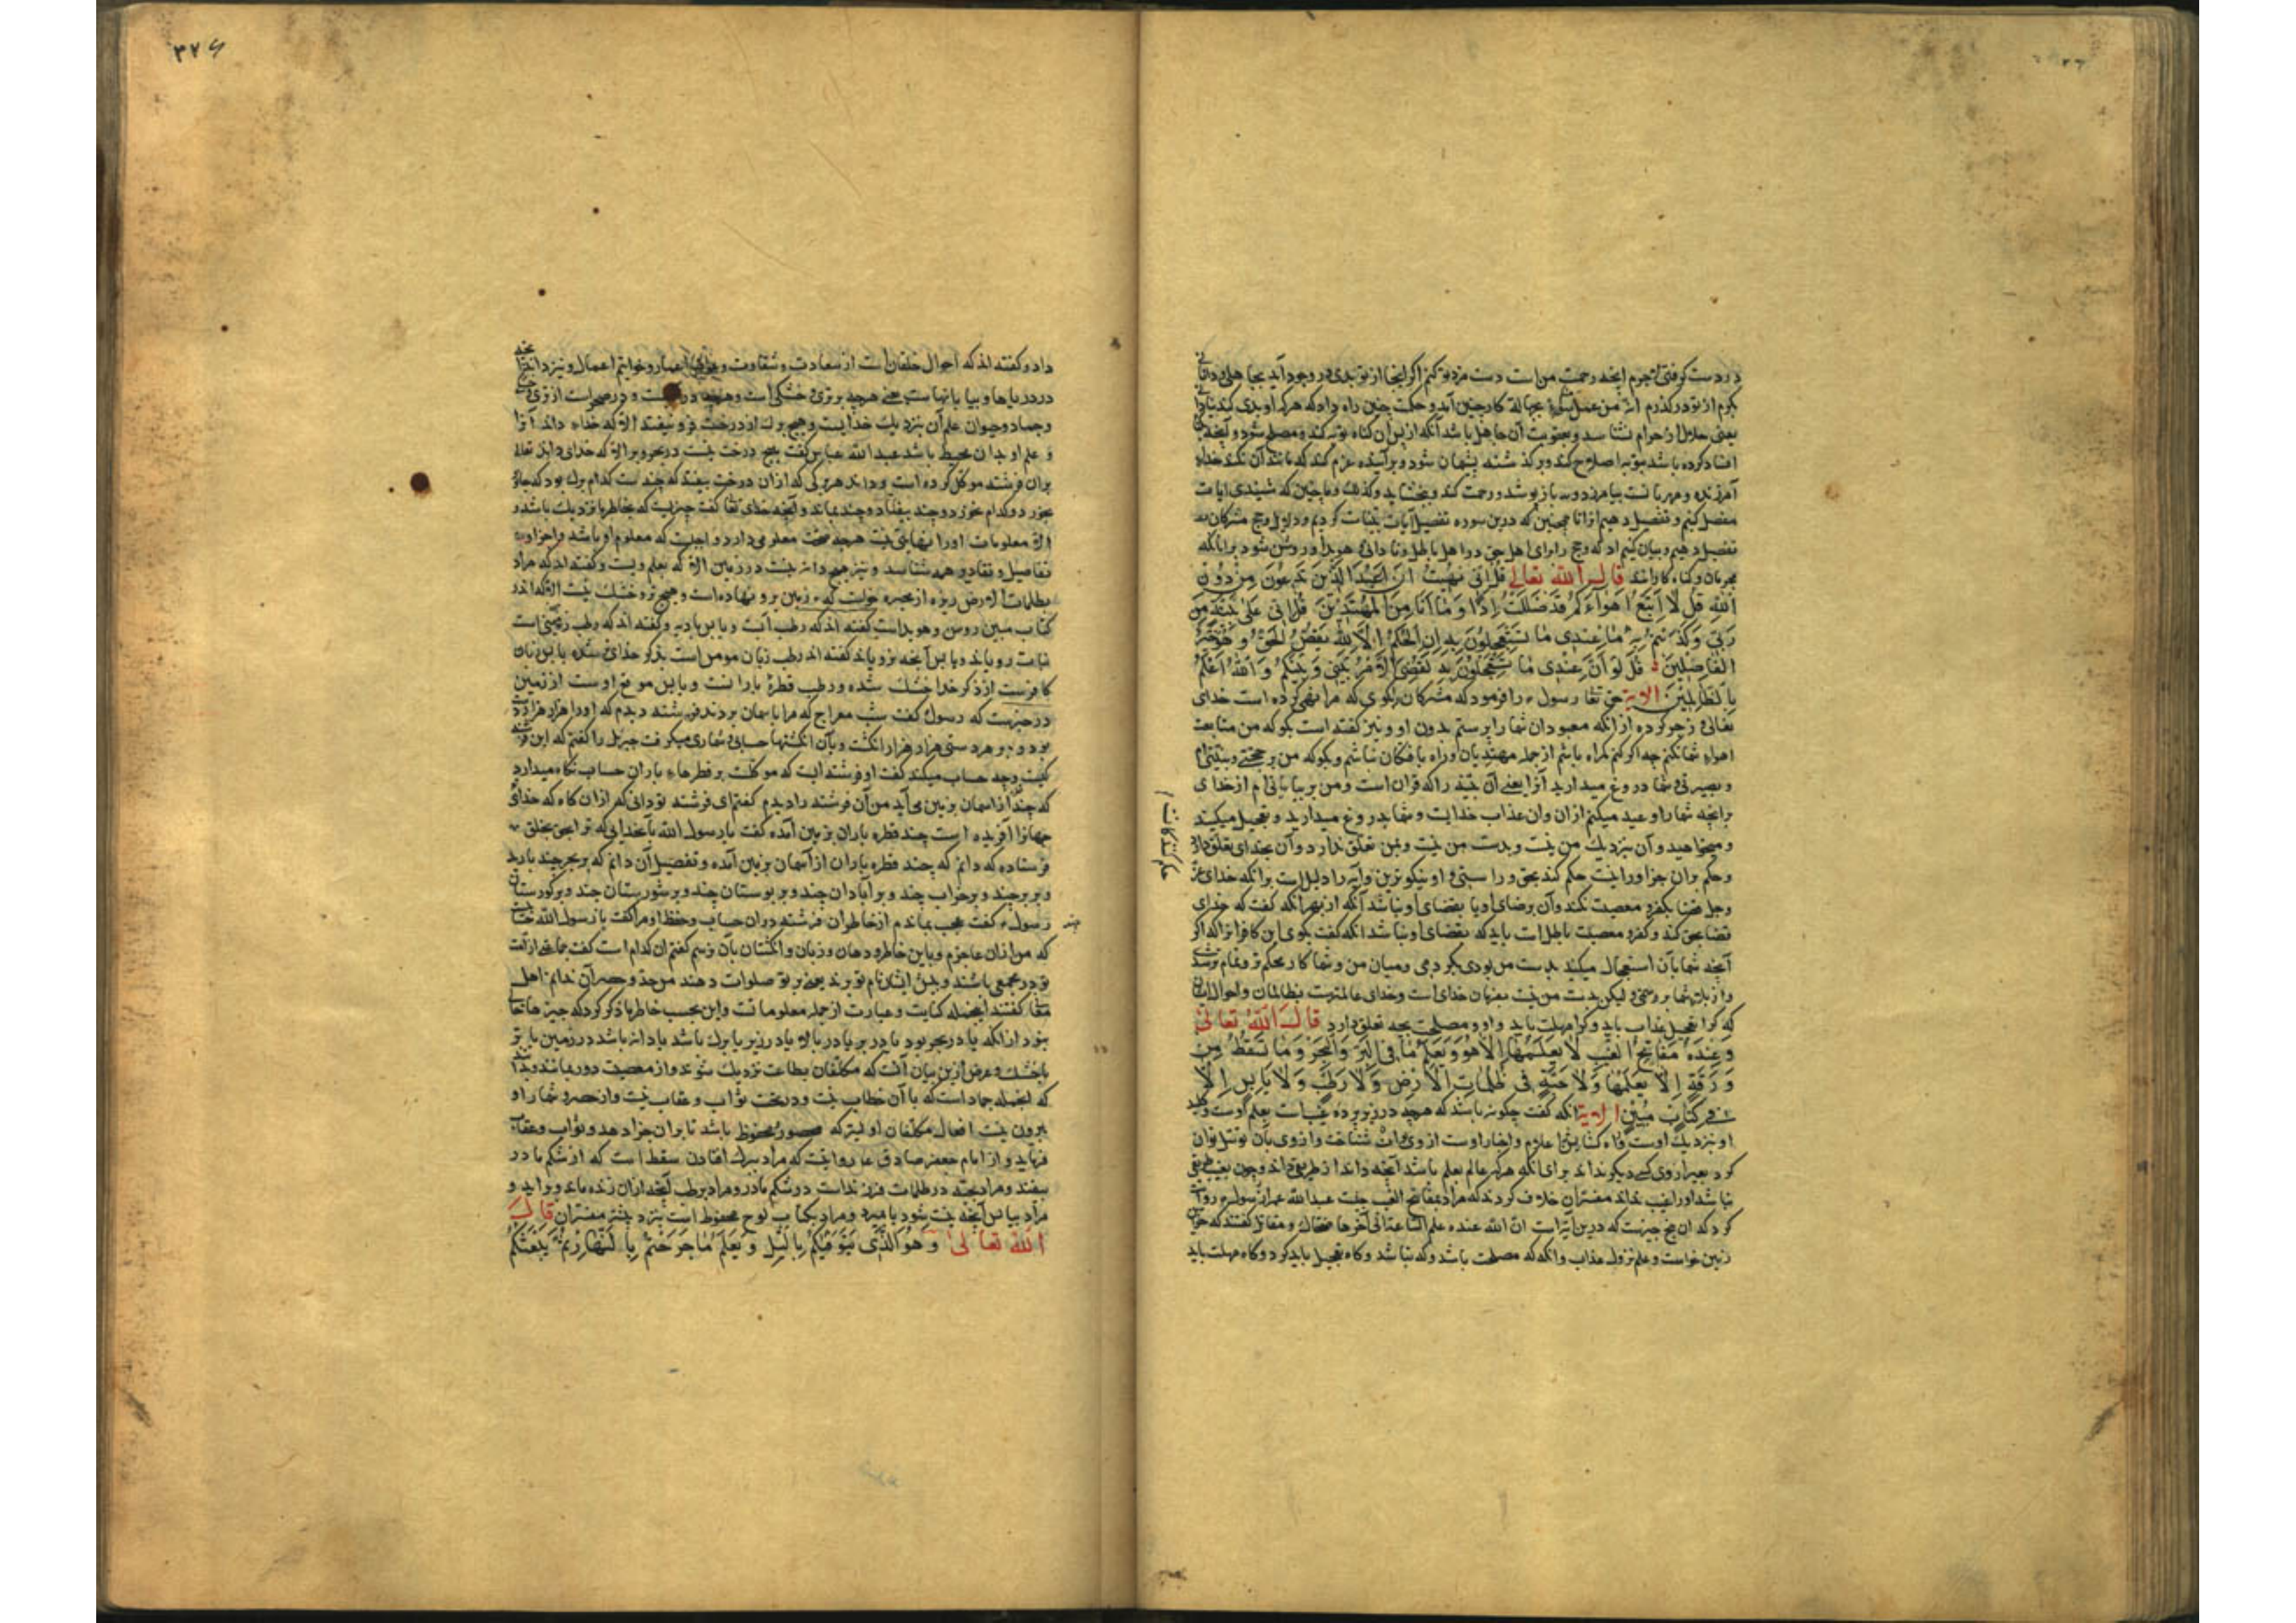 در دست گرفتی لاجرم آنچه رحمت من است دست مزد تو کنم اگر آنجا از تو بدی در وجود آید بجاهلی و نادانی
بکرم از تو درگذرم انه من عمل سوء بجهالة کار چنین آمد و حکمت چنین راه داد که هر که او بدی کند بنادانی
یعنی حلال از حرام نشناسد و بعقوبت آن جاهل باشد آنگه از پس آن گناه توبه کند و مصلح شود و آنچه
افساد کرده باشد بتوبه اصلاح کند و بر گذشته پشیمان شود و بر آینده عزم کند که مانند آن نکند خدای
آمرزنده و مهربانست بیامرزد و بپوشد و رحمت کند و ببخشاید وکذلک و ما چنین که شنیدی آیات
مفصل کنیم و تفصیل دهیم از اینجا همچنین که درین سوره تفصیل آیات بینات کردیم و دلایل و حجج مشرکان
تفصیل دهیم و بیان کنیم ادله و حجج را برای اهل حق در اهل باطل و تا دانی هویدا و روشن شود براه آنکه
مجرمان و گناه کارانند قال الله تعالی قل انی نهیت ان اعبد الذین تدعون من دون
الله قل لا اتبع اهواءکم قد ضللت اذا و ما انا من المهتدین قل انی علی بینة من
ربی وکذبتم به ما عندی ما تستعجلون به ان الحکم الا لله یقص الحق و هو خیر
الفاصلین قل لو ان عندی ما تستعجلون به لقضی الامر بینی و بینکم و الله اعلم
بالظالمین الایة حق تعا رسول را فرمود که مشرکان را بگوی که مرا نهی کرده است خدای
تعالی و زجر کرده از آنکه معبودان شما را پرستم بدون او و نیز گفته است بگو که من متابعت
اهواء شما نکنم چه اگر کنم گمراه باشم از جمله مهتدیان و راه یافتگان نباشم و بگو که من بر حجتی و بینتی ام
و بصیرتی و شما دروغ میدارید آنرا یعنی آن بینه را که قران است و من بر بیانی ام از خدای
برانچه شما را وعید میکنم ازان وان عذاب خدایست و شما بدروغ میدارید و تعجیل میکنید
و میخواهید و آن بنزدیک من نیست و بدست من نیست و بمن تعلق ندارد و آن بخدای تعلق دارد
و حکم بران جز او را نیست حکم کند بحق و راستی و او نیکوترین و آیه را دلیل است برانکه خدای عز
و جل قضا بکفر و معصیت نکند و آن برضای او یا بقضای او نباشد آنگه از بهر آنکه گفت که خدای
قضا بحق کند و کفر و معصیت باطل است باید که بقضای او نباشد آنگه گفت بگوی این کافرانرا که اگر
آنچه شما بآن استعجال میکنید بدست من بودی بکردمی و میان من و شما کار محکم و تمام
و لیکن بدست من نیست بفرمان خدای است و خدای عالمترست بظالمان و احوال ایشان
که کرا تعجیل عذاب باید و کرا مهلت باید و او و مصلحت بچه تعلق دارد قال الله تعالی
و عنده مفاتح الغیب لا یعلمها الا هو و یعلم ما فی البر و البحر و ما تسقط من
ورقة الا یعلمها و لا حبة فی ظلمات الارض و لا رطب و لا یابس الا
فی کتاب مبین الایة آنگه گفت چگونه باشد که هرچه در زیر پرده غیبات بعلم اوست و کلید
او بنزدیک اوست
کرد بغیر از وی کسی دیگر نداند برای آنکه هرکه عالم بعلم باشد آنچه داند از طریقی داند و چون
نباشد او را غیب نداند مفسران خلاف کردند که مراد بمفاتح الغیب چیست عبدالله عمر از رسول روایت
کرد که آن پنج چیزست که درین آیة است ان الله عنده علم الساعة الی آخرها ضحاک و مقاتل گفتند که خزاین
زمین خواست و علم نزول عذاب و آنکه که مصلحت باشد و که نباشد و کاه تعجیل باید کرد و کاه مهلت باید
حاکم
۳۷۶
داد و گفته اند که احوال خلقان است از سعادت و شقاوت و اعمار و خواتیم اعمال و نیز داند آنچه
در دریاها و بیابانهاست یعنی هرچه بر تری و خشکی است و هرچه در است و در صحراست از وی
و جماد و حیوان علم آن بنزدیک خدایست و هیچ برک از درخت فرو نیفتد الا که خدای داند آنرا
و علم او بدان محیط باشد عبدالله عباس گفت هیچ درخت نیست در بحر و بر الا که خدای تعالی
بران فرشته موکل کرده است و داند هر برگی که ازان درخت بیفتد که چندست کدام برک بود که جانور
بخورد و کدام نخورد و چند بیفتاد و چند بماند و آنچه خدای تعا گفت چیزیست که بخاطر ما نزدیک باشد و
الا معلومات او را نهایتی نیست هرچه صحت معلومی دارد واجبست که معلوم او باشد و اجزا و
تفاصیل و تقادیر همه شناسد و نیز هیچ دانه نیست در زمین الا که بعلم ویست و گفته اند که مراد
بظلمات الارض زمین برو نهاده است و هیچ تر و خشک نیست الا که اندر
کتاب مبین روشن و هویداست گفته اند که رطب آبست و یابس بادیه و گفته اند که رطب زمینی است
نبات رویاند و یابس آنچه نرویاند گفته اند رطب زبان مومن است بذکر خدای تر شده یابس زبان
کافرست از ذکر خدا خشک شده و رطب قطره بارانست و یابس موضع اوست از زمین
در خبرست که رسول گفت شب معراج که مرا باسمان بردند فرشته دیدم که او را هزار هزار دست
بود و بر هر دستی هزار هزار انگشت و بآن انگشتها حسابی و شماری میکرد گفت جبریل را گفتم که این فرشته
کیست و چه حساب میکند گفت او فرشته ایست که موکلست بر قطرهای باران حساب نگاه میدارد
که چند از اسمان بزمین می آید من آن فرشته را دیدم گفتم ای فرشته تو دانی که ازان گاه که خدای
جهانرا آفریده است چند قطره باران بزمین آمده گفت یا رسول الله بآن خدایی که ترا بحق بخلق
فرستاده که دانم که چند قطره باران از آسمان بزمین آمده و تفصیل آن دانم که بر بحر چند بارید
و بر بر چند و بر خراب چند و بر آبادان چند و بر بوستان چند و بر شورستان چند و بر گورستان
چند رسول گفت عجب بماندم از خاطر آن فرشته دران حساب و حفظ او مرا گفت یا رسول الله حسابیست
که من ازان عاجزم و باین خاطر و دهان و زبان و انگشتان بآن نرسم گفتم آن کدام است گفت جماعتی از امت
تو در مجمعی باشند و پیش ایشان نام تو برند همه بر تو صلوات دهند من حد و حصر آن ندانم اهل
معانی گفتند این جمله کنایت و عبارت از جمله معلوماتست و این بحسب خاطر ما ذکر کرد که چیزها خالی
نبود از آنکه یا در بحر بود یا در بر یا در بالا یا در زیر یا برک باشد یا دانه باشد در زمین یا تر
یا خشک و غرض ازین بیان آنست که مکلفان بطاعت نزدیک شوند و از معصیت دور بمانند و بدانند
که این جمله جماد است که با آن خطاب نیست و در تحت ثواب و عقاب نیست و از حصر و شمار او
بیرون نیست افعال مکلفان اولیتر که محصور و محفوظ باشد تا بران جزا دهد و ثواب و عقاب
فرماید و از امام جعفر صادق روایتست که مراد ببرک افتادن سقط است که از شکم مادر
بیفتد و مراد بحبه در ظلمات فرزندست در شکم مادر و مراد برطب آنچه ازان زنده ماند و بزاید و
مراد بیابس آنچه نیست شود یا بمیرد و مراد بکتاب لوح محفوظ است بنزد بیشتر مفسران قال
الله تعالی و هو الذی یتوفیکم باللیل و یعلم ما جرحتم بالنهار ثم یبعثکم